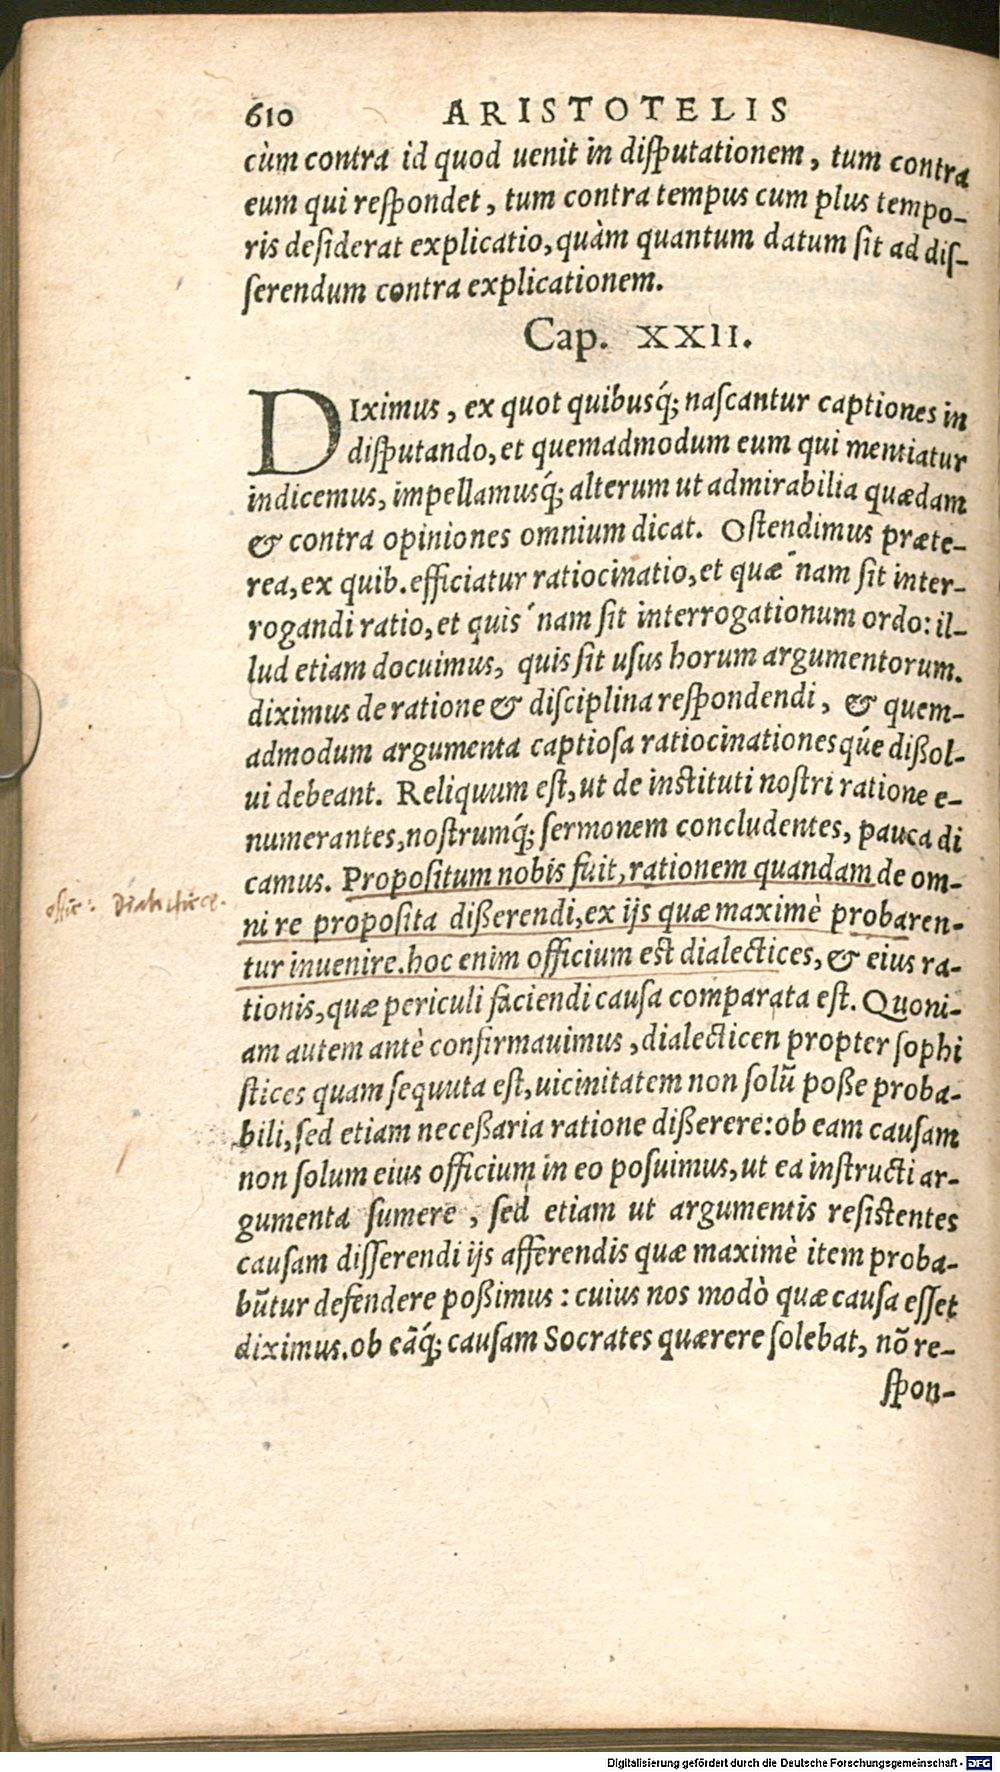 610 ARISTOTELIS
cùm contra id quod uenit in disputationem, tum contra
eum qui respondet, tum contra tempus cum plus tempo-
ris desiderat explicatio, quàm quantum datum sit ad dis-
serendum contra explicationem.
Cap. XXII.
DIximus, ex quot quibusq́; nascantur captiones in
disputando, et quemadmodum eum qui mentiatur
indicemus, impellamusq́; alterum ut admirabilia quædam
& contra opiniones omnium dicat. Ostendimus præte-
rea, ex quib. efficiatur ratiocinatio, et quæ´nam sit inter-
rogandi ratio, et quis´nam sit interrogationum ordo: il-
lud etiam docuimus, quis sit usus horum argumentorum.
diximus de ratione & disciplina respondendi, & quem-
admodum argumenta captiosa ratiocinationesq́ue dißol-
ui debeant. Reliquum est, ut de instituti nostri ratione e-
numerantes, nostrumq́; sermonem concludentes, pauca di
camus. Propositum nobis fuit, rationem quandam de om-
ni re proposita dißerendi, ex ijs quæ maximè probaren-
tur inuenire. hoc enim officium est dialectices, & eius ra-
tionis, quæ periculi faciendi causa comparata est. Quoni-
am autem antè confirmauimus, dialecticen propter sophi
stices quam sequuta est, uicinitatem non solũ poße proba-
bili, sed etiam neceßaria ratione dißerere: ob eam causam
non solum eius officium in eo posuimus, ut ea instructi ar-
gumenta sumere, sed etiam ut argumentis resistentes
causam disserendi ijs afferendis quæ maximè item proba-
bũtur defendere poßimus: cuius nos modò quæ causa esset
diximus. ob eãq́; causam Socrates quærere solebat, nõ re-
spon-
Dialecticæ.
Digitalisierung gefördert durch die Deutsche Forschungsgemeinschaft - DFG